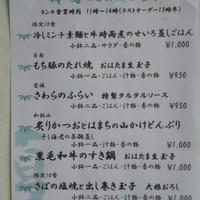 ランチ営業時間 11時〜14時(ラストオーダー13時半)
限定10食
冷しミンチ素麺と牛時雨煮のせいろ蒸しごはん
小鉢二品・サラダ・香の物 ¥1,000
日南
もち豚のたれ焼 おはたま生玉子
小鉢一品・ごはん・汁物・香の物 ¥950
愛媛
さわらのふらい 特製タルタルソース
小鉢二品・ごはん・汁物・香の物 ¥950
和歌山
炙りかつおとはまちの山かけどんぶり
小鉢二品・汁物・香の物 ¥1,000
黒毛和牛のすき鍋 おはたま生玉子
小鉢一品・ごはん・汁物・香の物 ¥1,000
限定10食
さばの塩焼と出し巻き玉子 大根おろし
小鉢二品・ごはん・汁物・香の物 ¥1,000